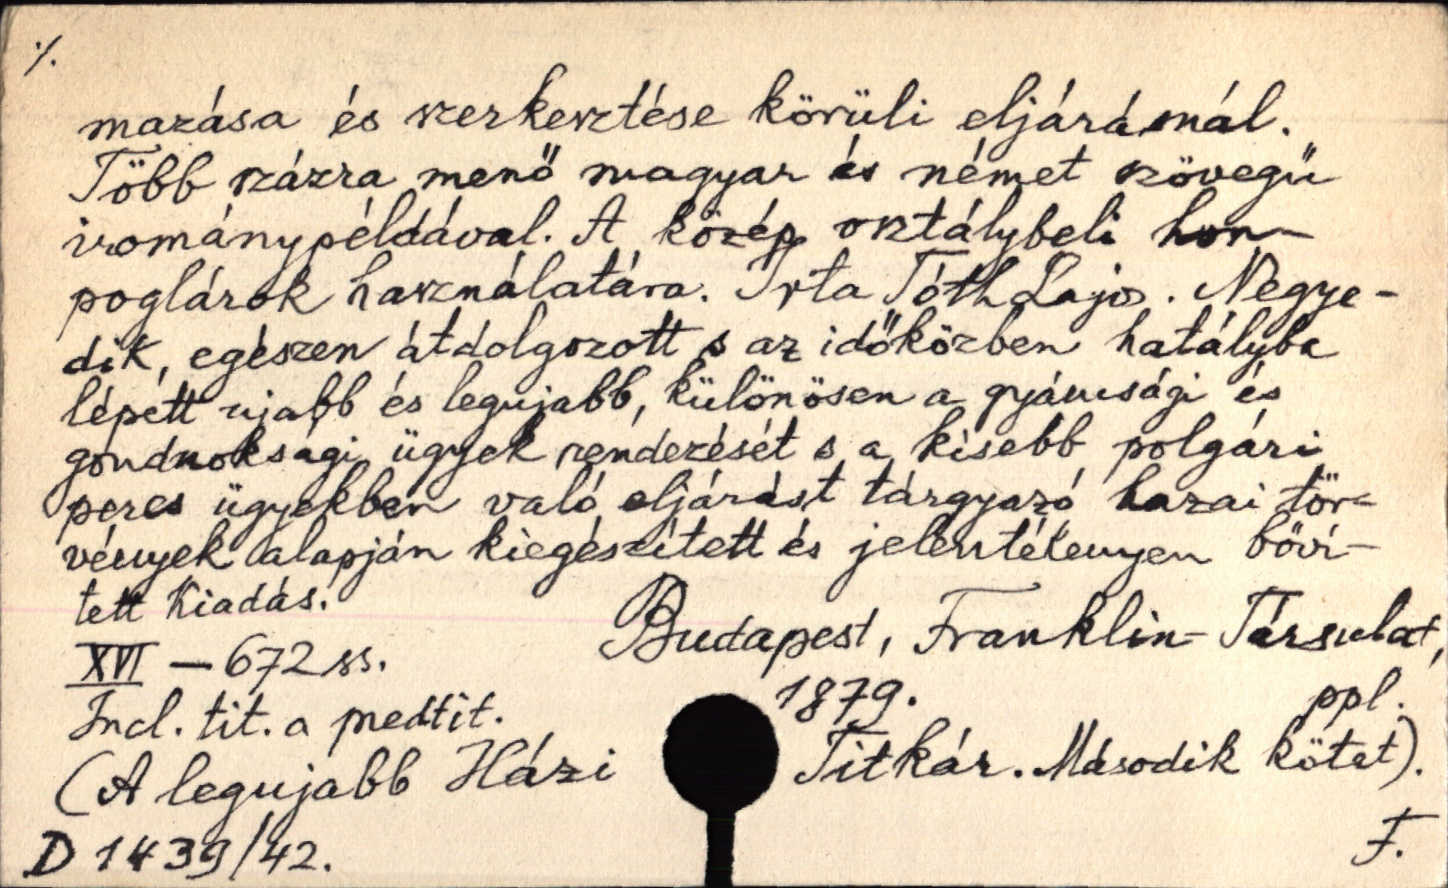 ·/.
mazása és szerkesztése körüli eljárásnál.
Több százra menő magyar és német szövegű
irománypéldával. A közép osztálybeli hon-
poglárok használatára. Irta Tóth Lajos. Negye-
dik, egészen átdolgozott s az időközben hatályba
lépett ujabb és legujabb, különösen a gyámsági és
gondnoksági ügyek rendezését s a kisebb polgári
peres ügyekben való eljárást tárgyazó hazai tör-
vények alapján kiegészített és jelentétenyen bőví-
tett kiadás.
Budapest, Franklin-Társulat,
XVI — 672 ss.
1879. ppl.
Incl. tit. a predtit.
(A legujabb Házi Titkár. Második kötet).
D 1439/42. F.